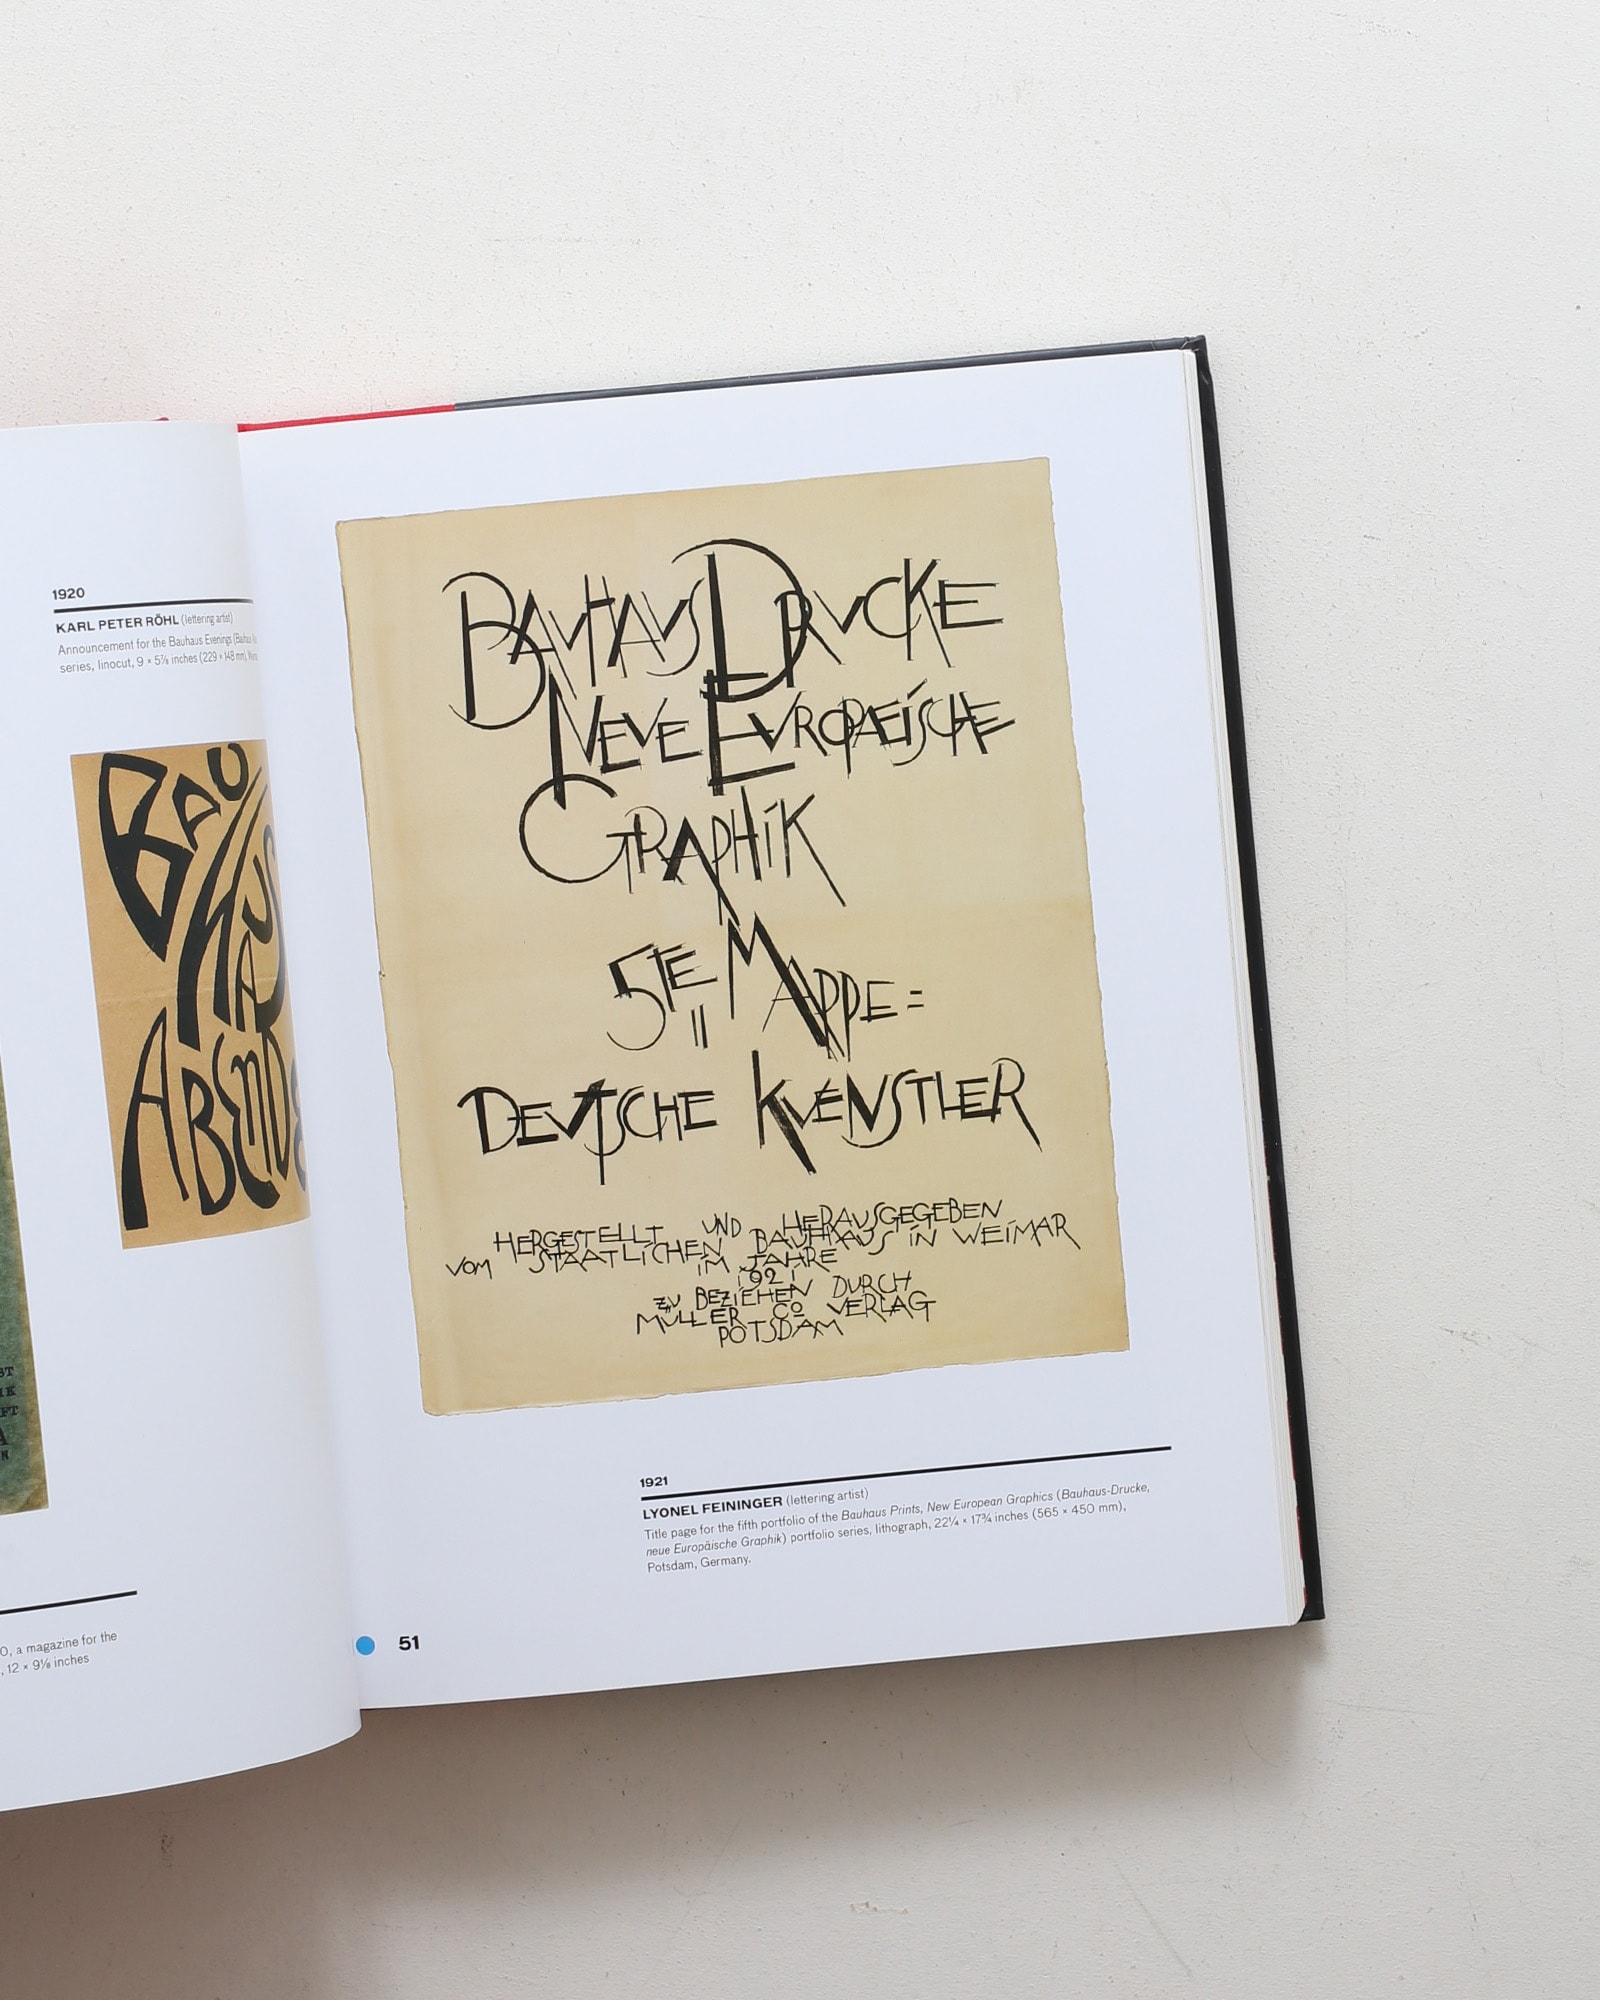 1920
KARL PETER RÖHL (lettering artist)
Announcement for the Bauhaus Evenings (Bauhaus
series, linocut, 9 × 5⅞ inches (229 × 148 mm),
BAU
HAUS
ABENDE
ST
IK
FT
A
N
O, a magazine for the
, 12 × 9⅛ inches
BAUHAUS DRUCKE
NEUE EUROPAEISCHE
GRAPHIK
5TE MAPPE =
DEUTSCHE KUENSTLER
HERGESTELLT UND HERAUSGEGEBEN
VOM STAATLICHEN BAUHAUS IN WEIMAR
IM JAHRE
1921
ZU BEZIEHEN DURCH
MÜLLER & CO VERLAG
POTSDAM
1921
LYONEL FEININGER (lettering artist)
Title page for the fifth portfolio of the Bauhaus Prints, New European Graphics (Bauhaus-Drucke,
neue Europäische Graphik) portfolio series, lithograph, 22¼ × 17¾ inches (565 × 450 mm),
Potsdam, Germany.
51